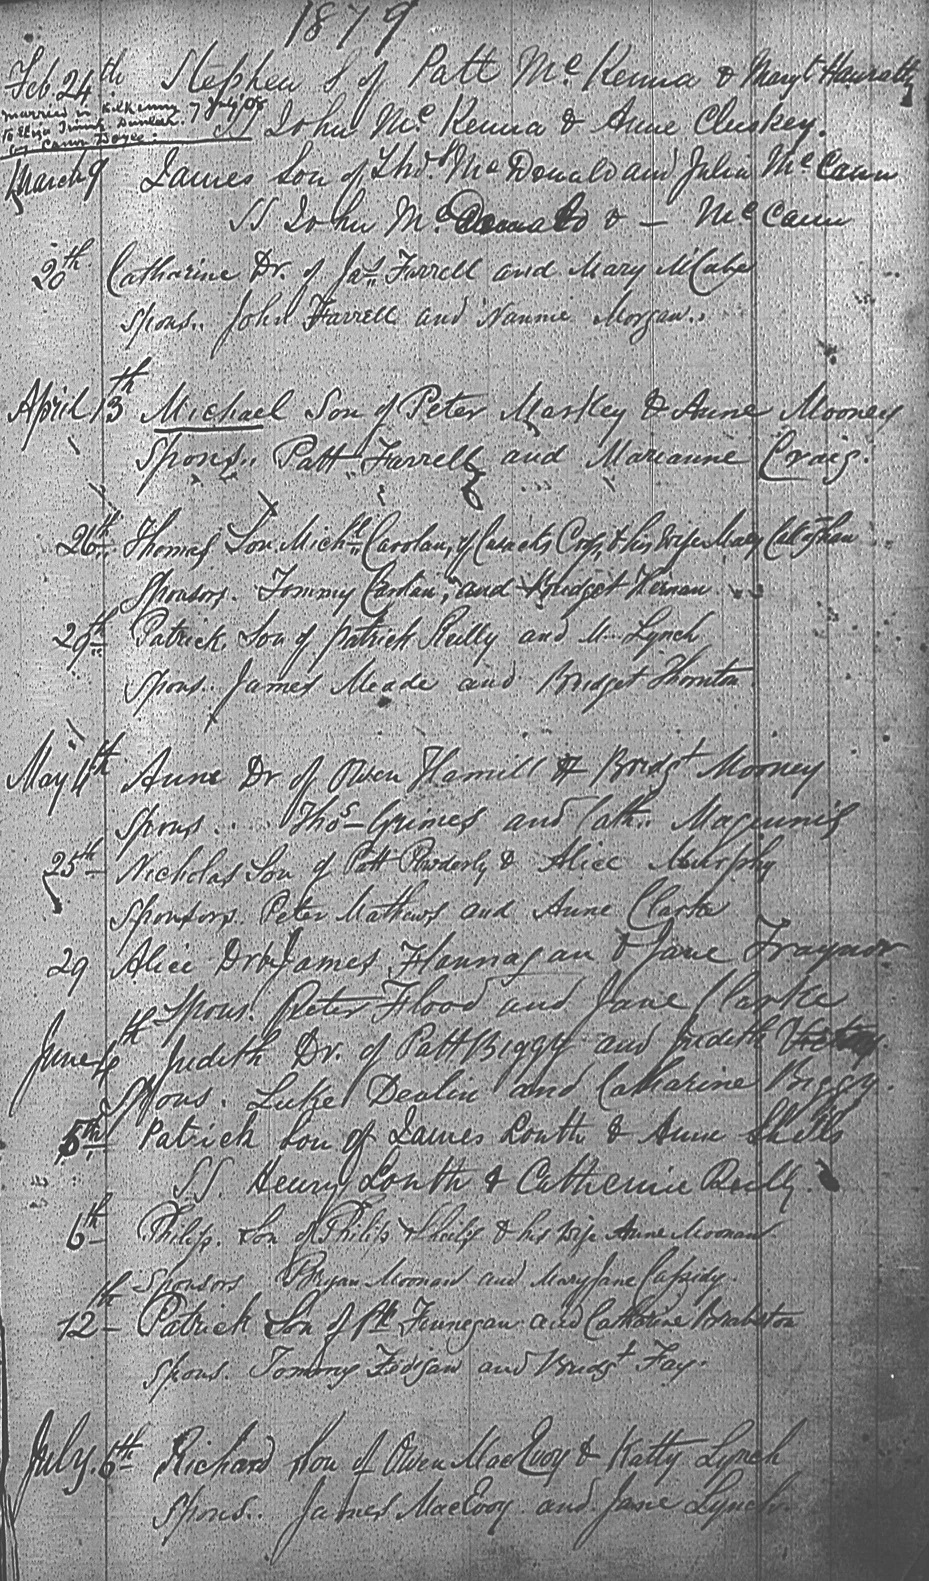 1879
Feb. 24th Stephen S of Patt McKenna & Margt Hanratty
married in Kilkenny 7 July '08
to Eliza
by Canon Doyle.
SS John McKenna & Anne Cluskey.
March 9 James Son of Thos. McDonald and Julia McCann
SS John McDonald & — McCann
20th Catherine Dr. of Jas Farrell and Mary McCabe
Spons.. John Farrell and Nannie Morgan..
April 13th Michael Son of Peter Markey & Anne Mooney
Spons.. Patt Farrell and Marianne Craig.
26th Thomas Son Michl Carolan, of Cross, & his wife Mary Callaghan
Sponsors. Tommy Carolan, and Bridget Kernan
29th Patrick Son of Patrick Reilly and M. Lynch
Spons.. James Meade and Bridget Thornton
May 4th Anne Dr of Owen Hamill & Bridgt Mooney
Spons .... Thos Grimes and Cath.. Magennis
25th Nicholas Son of Patt Powderly & Alice Murphy
Sponsors. Peter Mathews and Anne Clarke
29 Alice Dr of James Flannagan & Jane Traynor
Spons. Peter Flood and Jane Clarke
June 4th Judith Dr. of Patt Biggy and Judith
Spons. Luke Devlin and Catharine Biggy.
5th Patrick Son of James Louth & Anne Shells
SS. Henry Louth & Catherine Reilly.
6th Philip. Son of Philip Skelly & his wife Anne Moonan
Sponsors Bryan Moonan and Mary Jane Cassidy.
12th Patrick Son of Pk Finnegan and Catherine Brabston
Spons. Tommy Finigan and Bridgt Fay.
July. 6th Richard Son of Owen MacEvoy & Katty Lynch
Spons.. James MacEvoy and Jane Lynch.